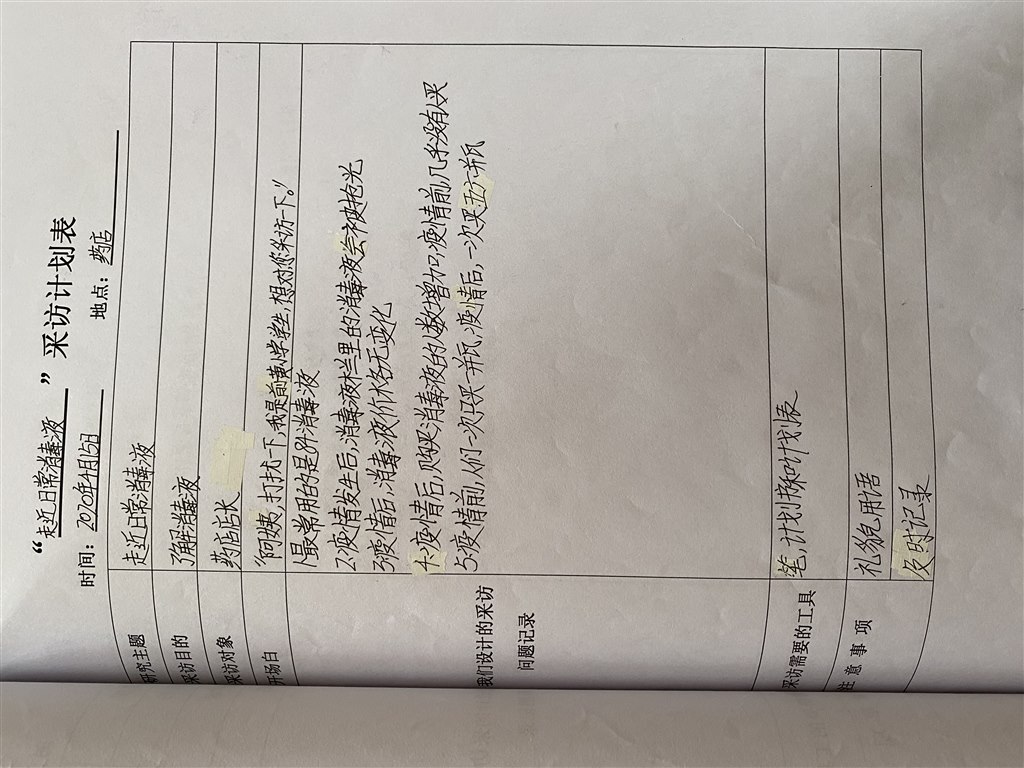 “走近日常消毒液”采访计划表
时间：2020年4月15日 地点：药店
研究主题 走近日常消毒液
采访目的 了解消毒液
采访对象 药店店长
开场白 “阿姨，打扰一下，我是前黄小学学生，想对您采访一下。”
我们设计的采访问题记录
1.最常用的是84消毒液
2.疫情发生后，消毒液栏里的消毒液会被抢光
3.疫情后，消毒液价格无变化
4.疫情后，购买消毒液的人数增加，疫情前几乎没有人买
5.疫情前，人们一次只买一瓶，疫情后，一次买五六瓶
采访需要的工具 笔，计划书和计划表
注意事项 礼貌用语
及时记录